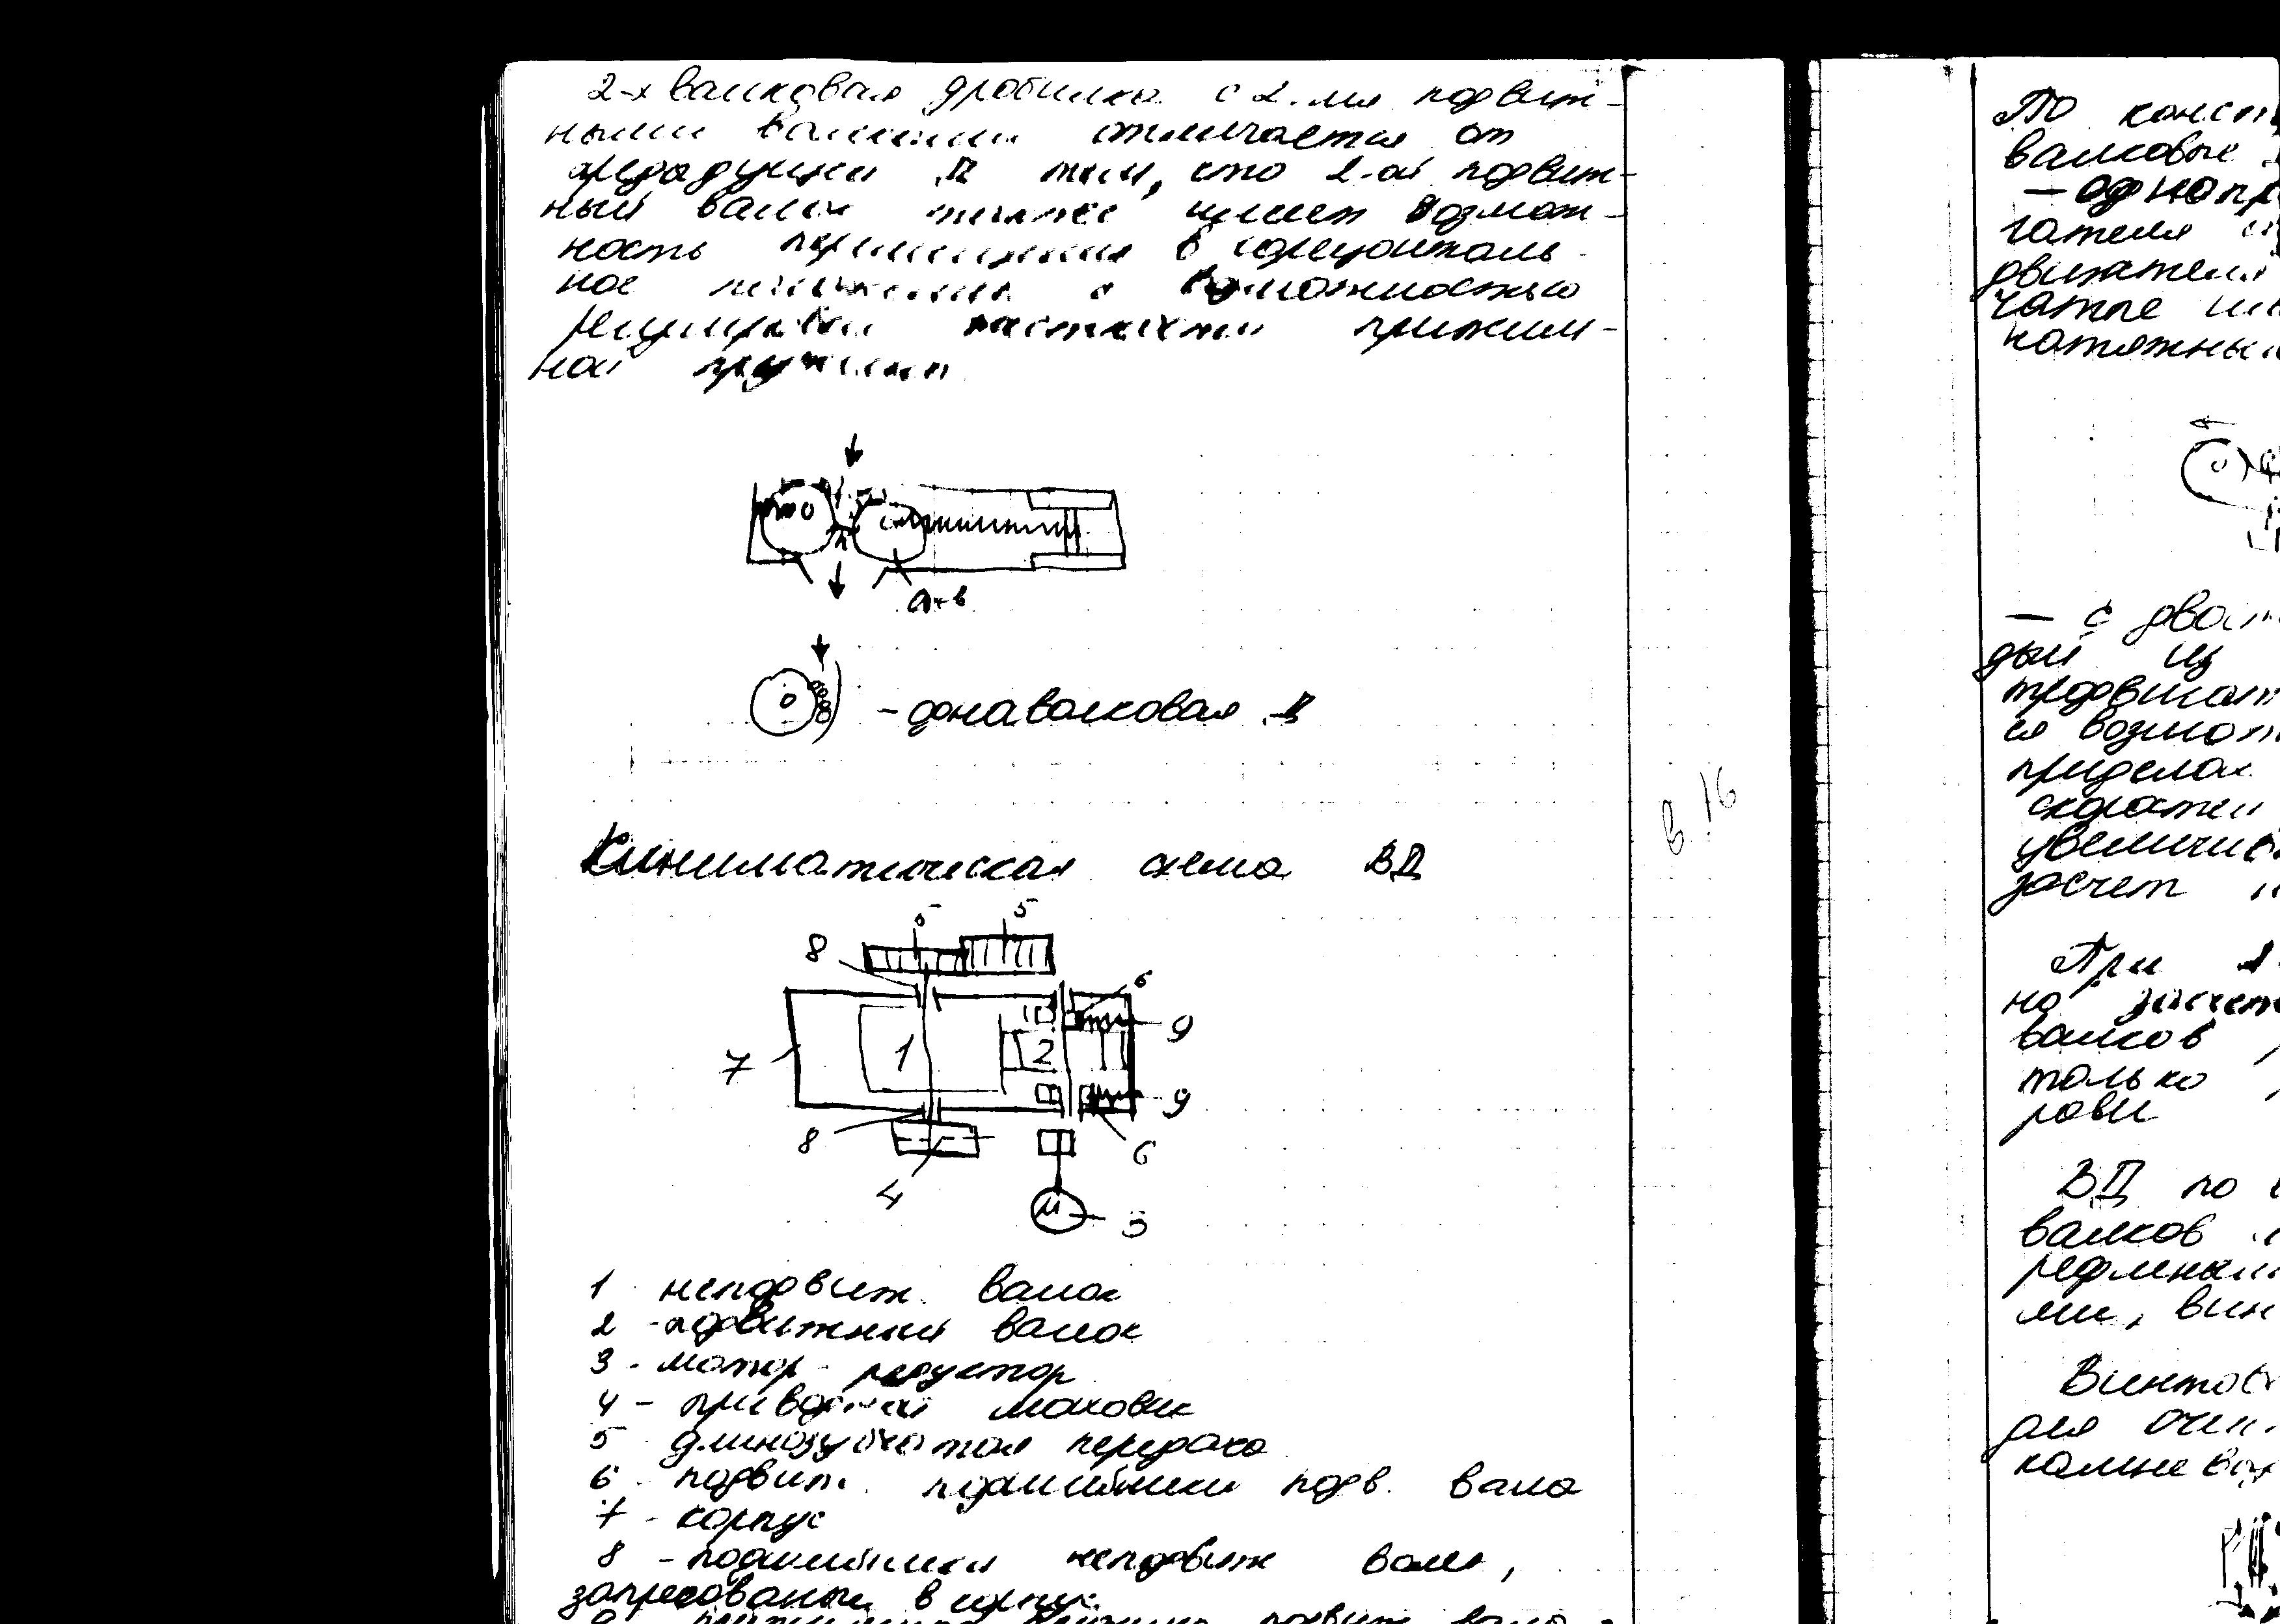 2-х валковая дробилка с 2-мя подвиж-
ными валками отличается от
предыдущей Д тем, что 2-ой подвиж-
ный валок также имеет возмож-
ность перемещения в горизонталь-
ное с возможностью
жесткости прижим-
ной пружины
а+в
- однавалковая Д
в.16
Кинематическая схема ВД
5
8
6
1
2
9
7
9
8
6
4
М
3
1 неподвиж. валок
2 - подвижный валок
3 - мотор-редуктор
4 - приводной маховик
5 длинозубчатая передача
6 - подвиж. подшипники подв. вала
7 - корпус
8 - подшипники неподвиж вала,
запресованы в корпус
По конст
валковые
- однопр
гателя
двигателя
чатые
натяжны
- с двог
дый из
трдвигат
ся возмож
приделах
скорости
увеличив
засчет
При
но засчет
валков
только
рови
ВД по
валков
ременны
ми, вин
Винтов
для очи
камне